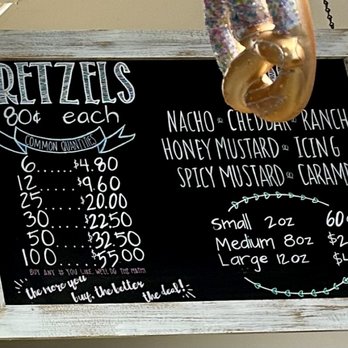 RETZELS
80¢ each
COMMON QUANTITIES
6.....$4.80
12.....$9.60
25.....$20.00
30.....$22.50
50.....$32.50
100.....$55.00
BUY ANY # YOU LIKE, WE'LL DO THE MATH!
the more you buy, the better the deal!
NACHO CHEDDAR RANCH
HONEY MUSTARD ICING
SPICY MUSTARD CARAM
Small 2oz 60
Medium 8oz $2
Large 12oz $